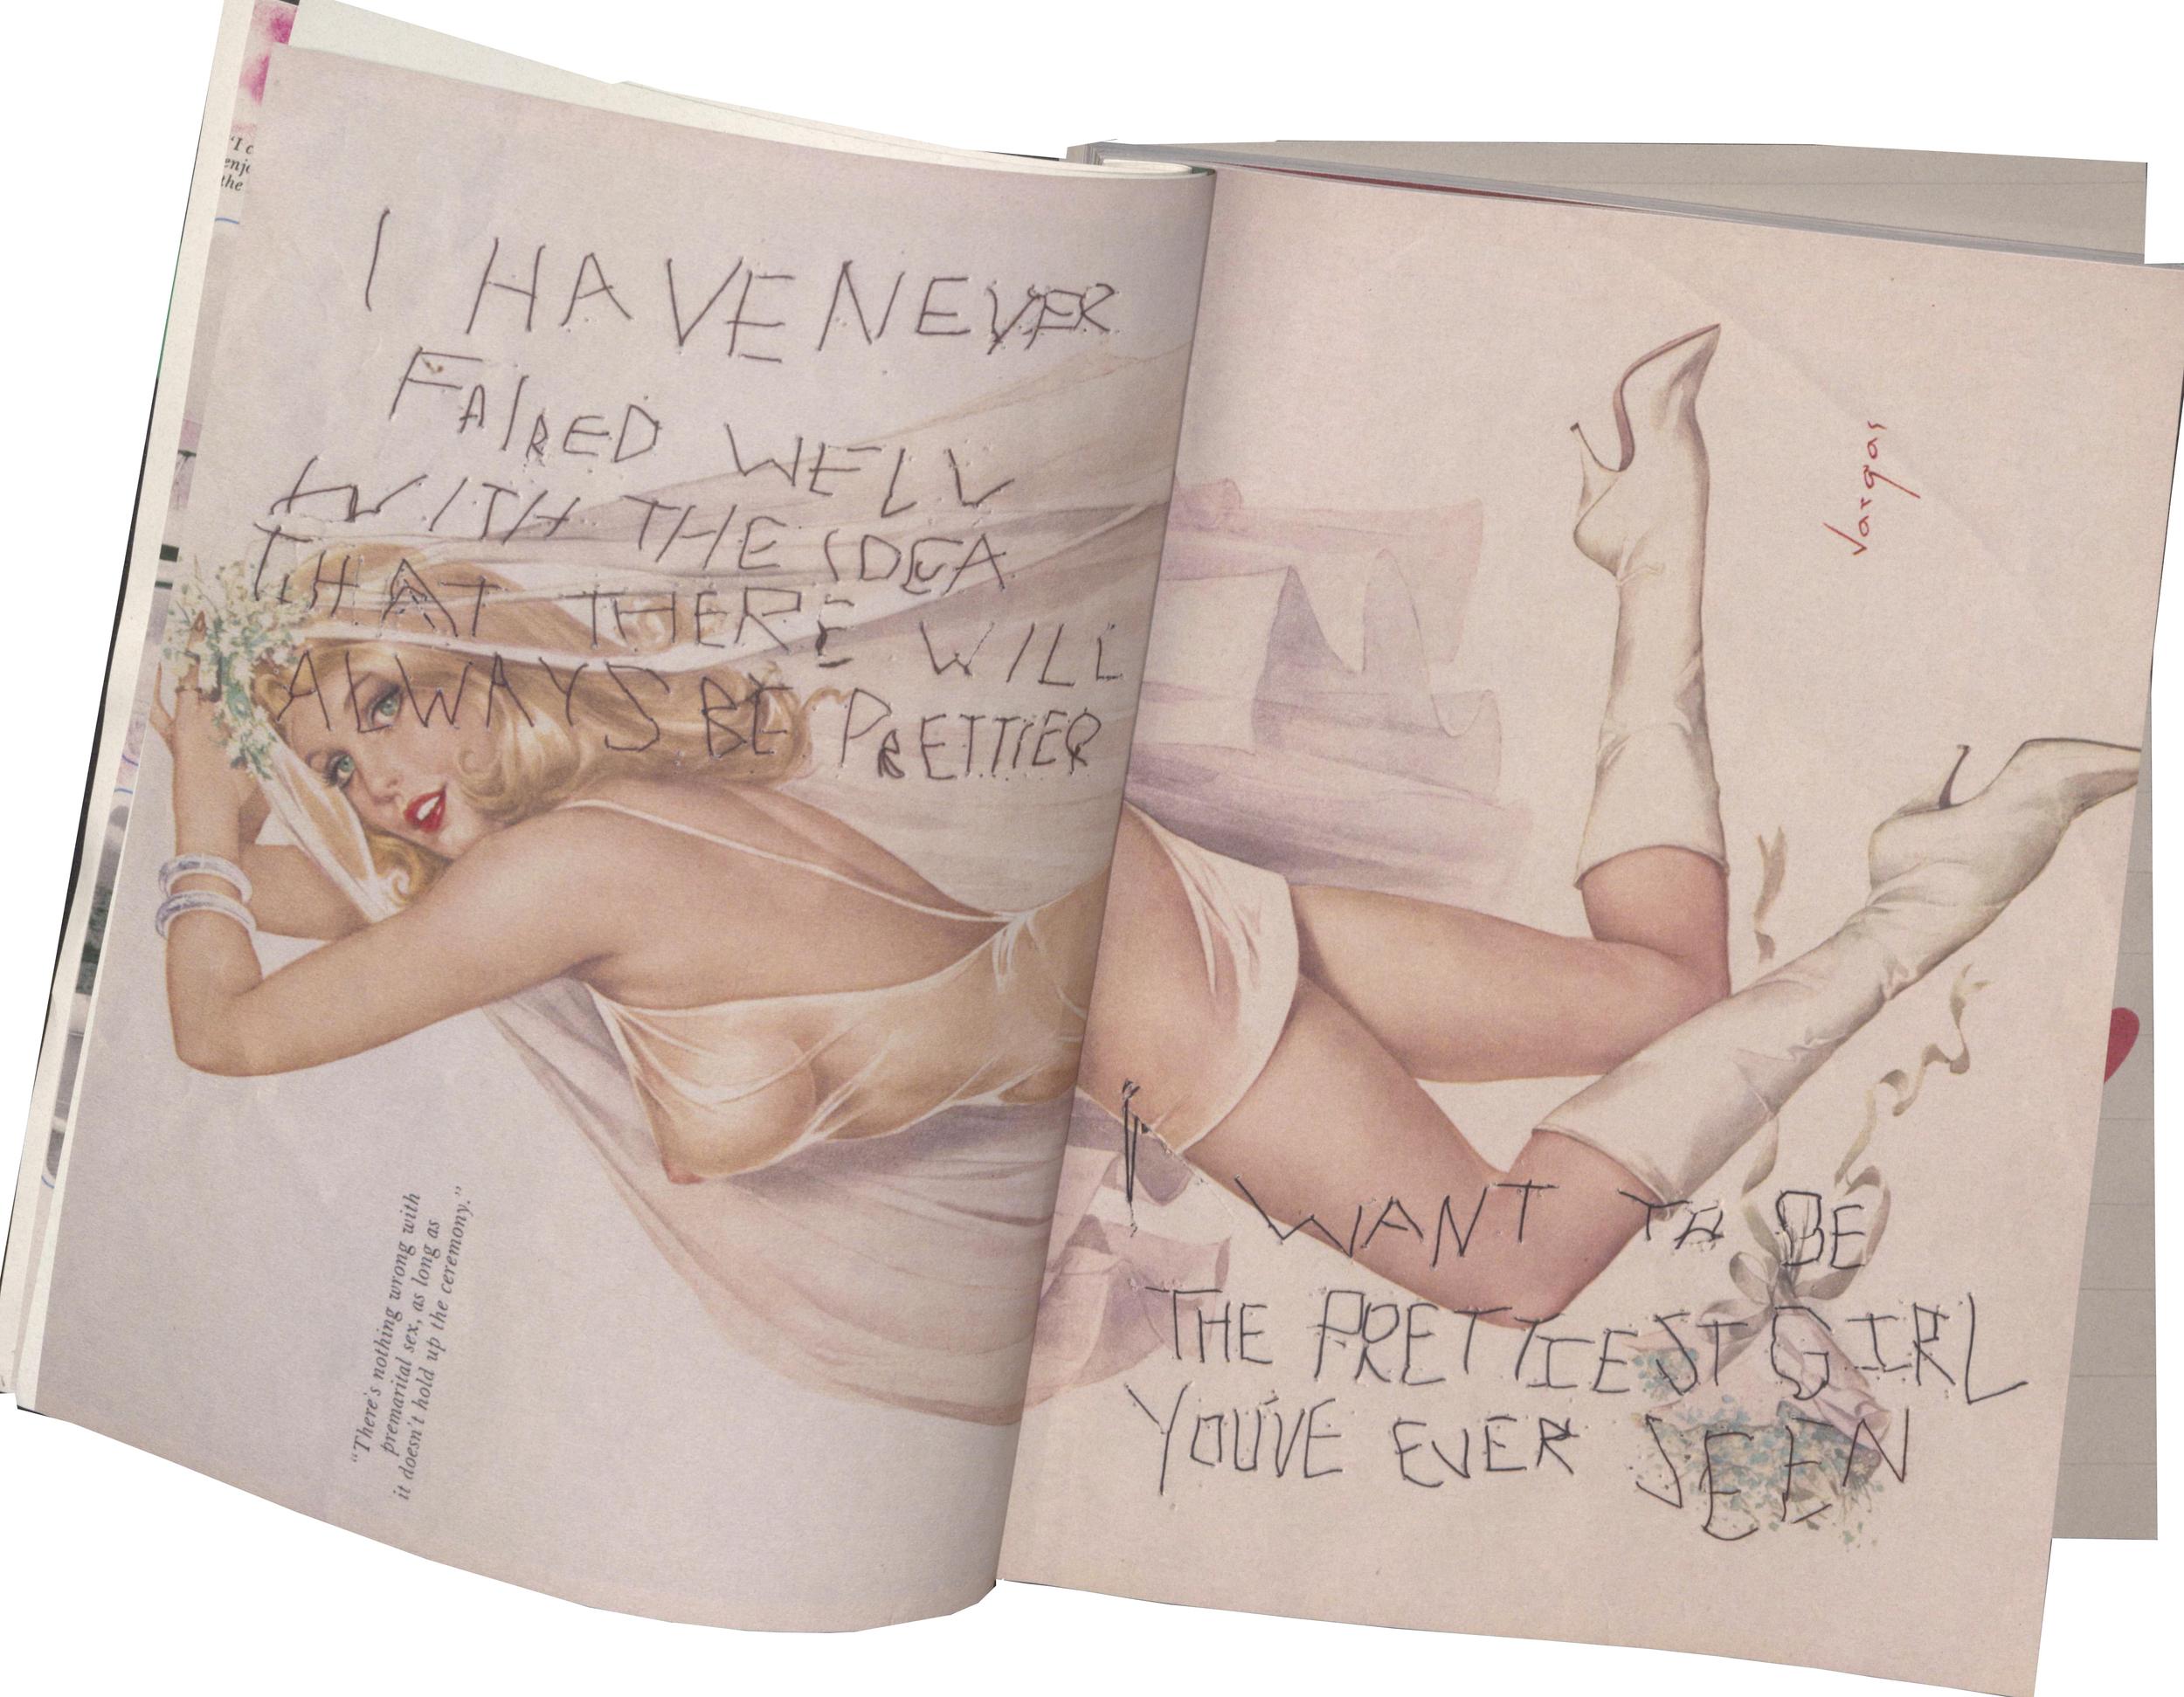 "I c
enjo
the
I HAVE NEVER
FAIRED WELL
WITH THE IDEA
THAT THERE WILL
ALWAYS BE PRETTIER
"There's nothing wrong with
premarital sex, as long as
it doesn't hold up the ceremony."
Vargas
I WANT TO BE
THE PRETTIEST GIRL
YOU'VE EVER SEEN